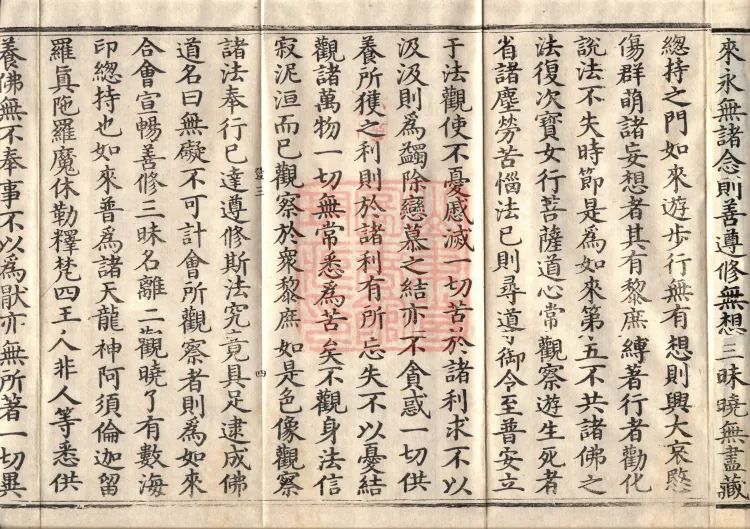 來永無諸念則善遵修無想三昧曉無盡藏
總持之門如來遊步行無有想則興大哀愍
傷群萌諸妄想者其有黎庶縛著行者勸化
說法不失時節是為如來第五不共諸佛之
法復次寶女行菩薩道心常觀察遊生死者
省諸塵勞苦惱法已則尋導御令至普安立
于法觀使不憂慼滅一切苦於諸利求不以
汲汲則為蠲除戀慕之結亦不貪惑一切供
養所獲之利則於諸利有所忘失不以憂結
觀諸萬物一切無常悉為苦矣不觀身法信
寂泥洹而已觀察於眾黎庶如是色像觀察
諸法奉行已達遵修斯法究竟具足逮成佛
道名曰無礙不可計會所觀察者則為如來
合會宣暢善修三昧名離二觀曉了有數海
印總持也如來普為諸天龍神阿須倫迦留
羅真陁羅魔休勒釋梵四王人非人等悉供
養佛無不奉事不以為猒亦無所著一切異